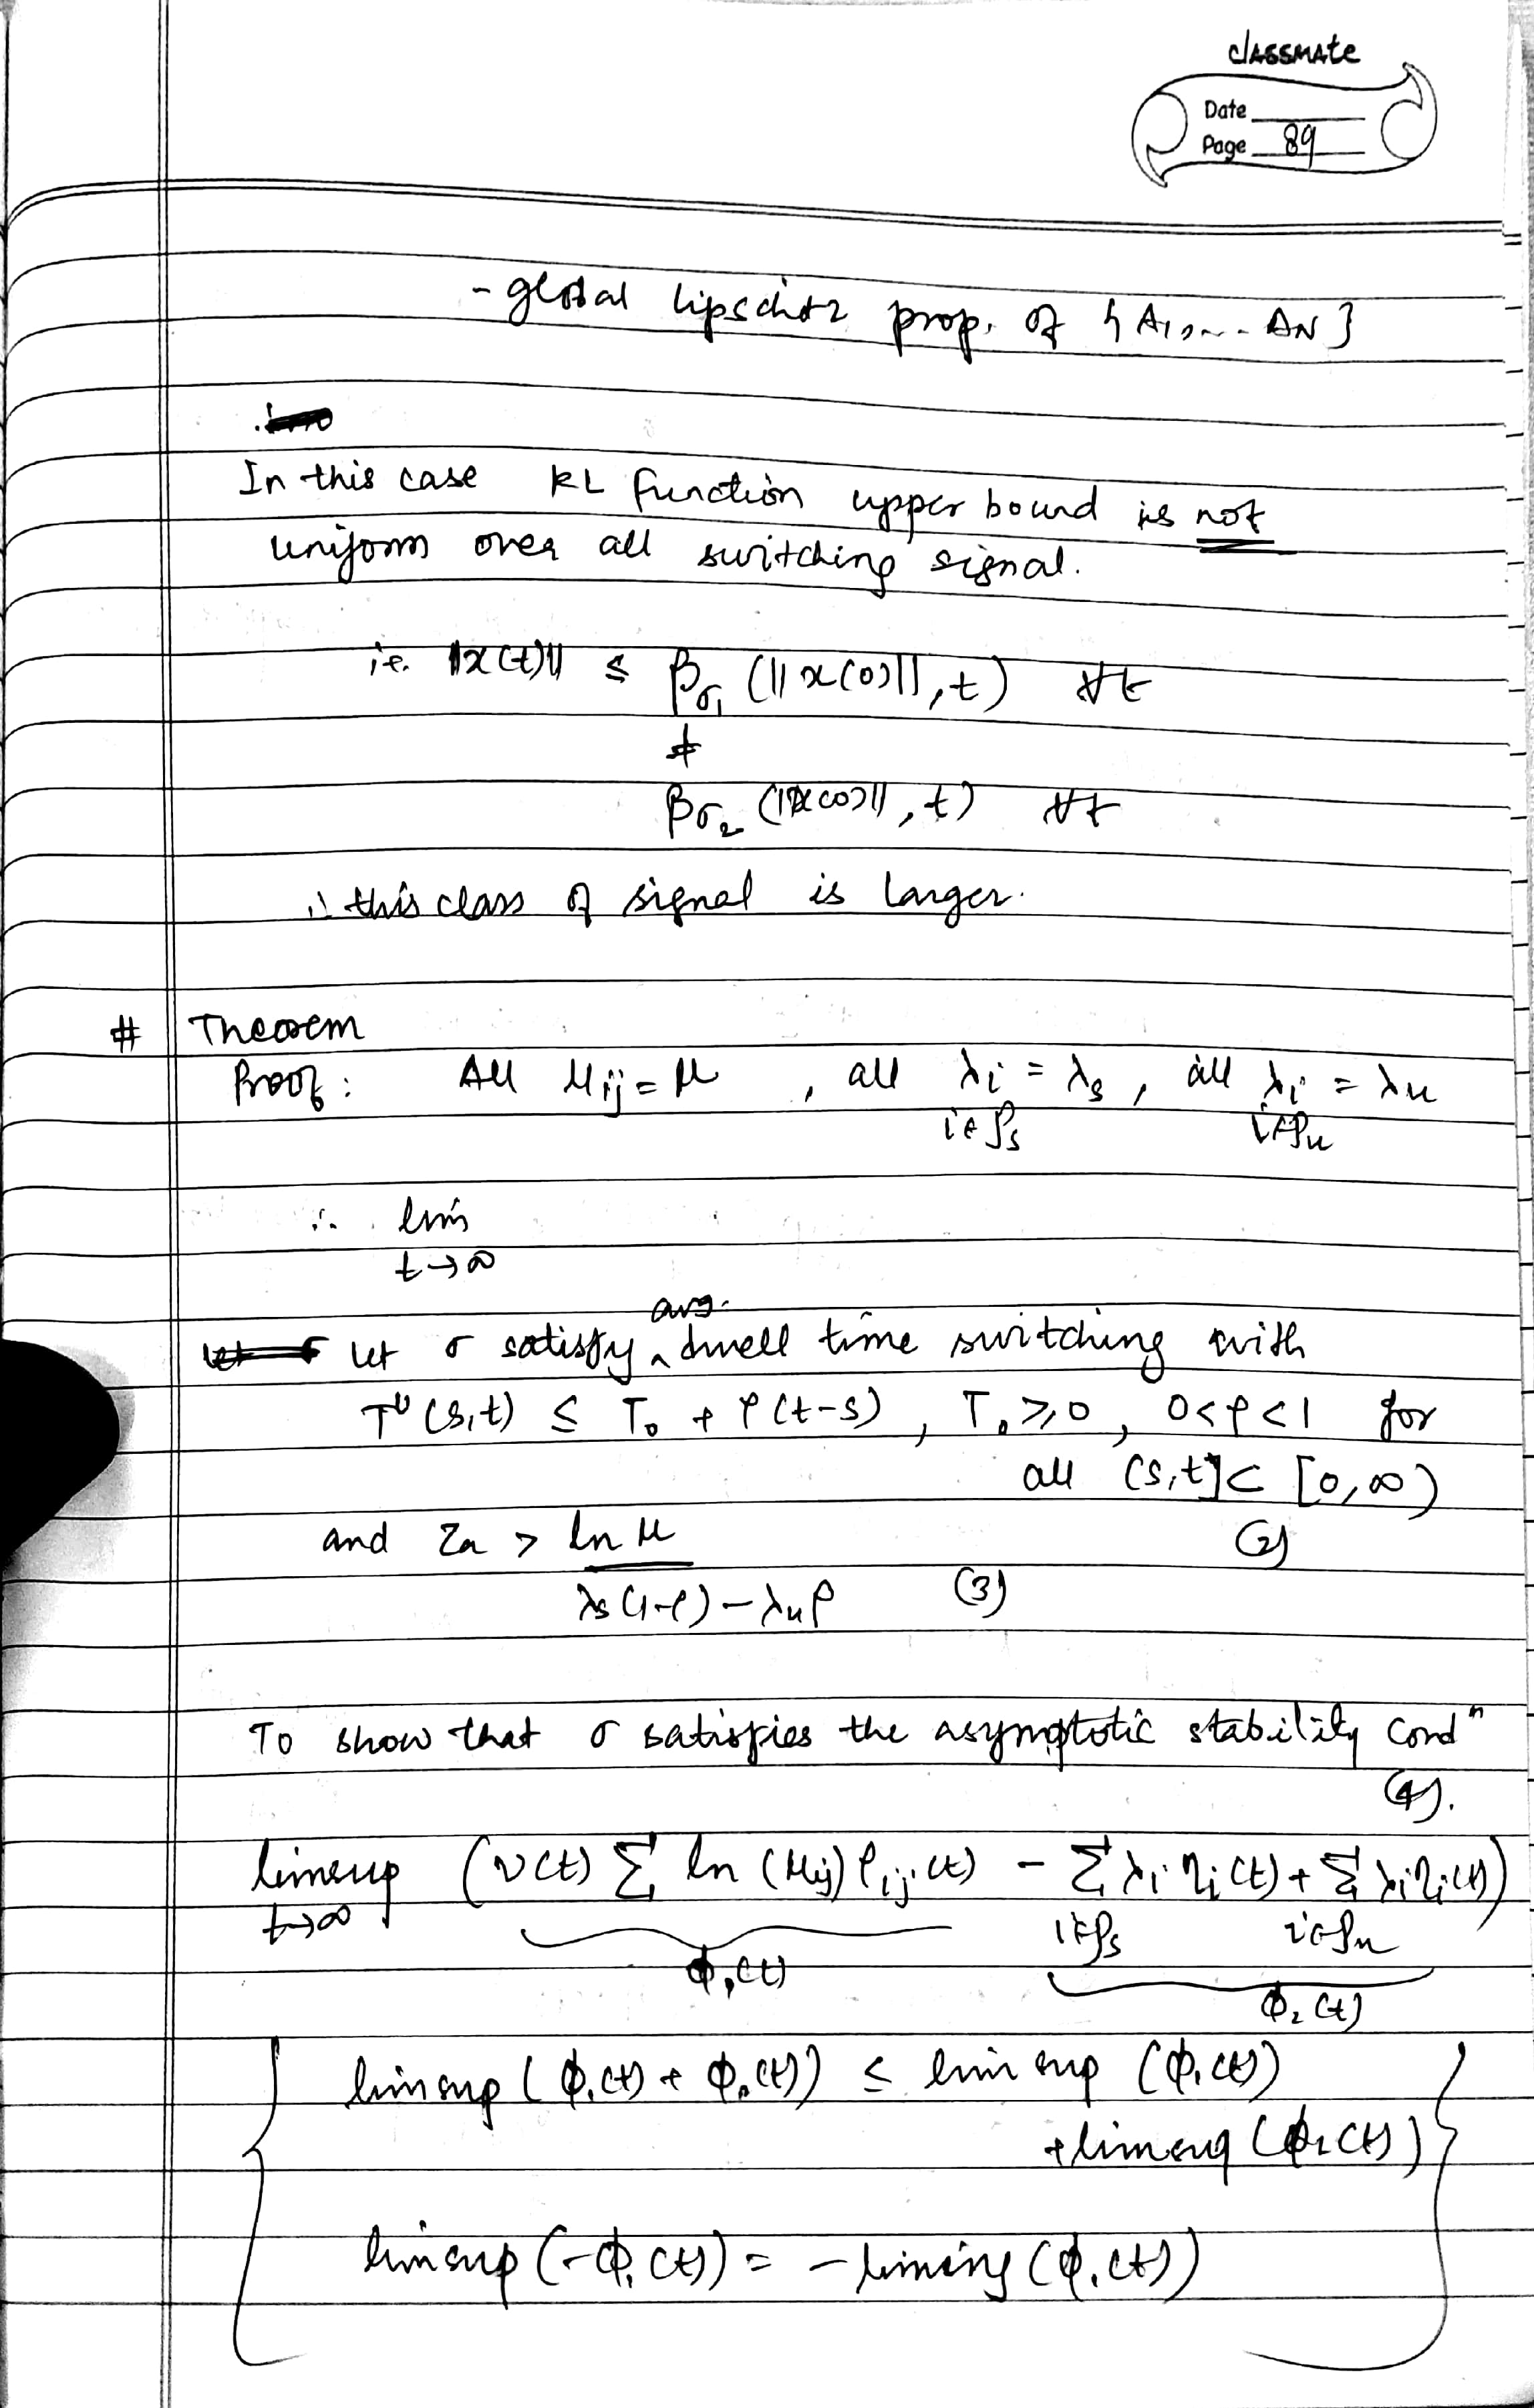 classmate
Date
Page 89
- global lipschitz prop. of {A1, ... AN}
In this case KL function upper bound is not
uniform over all switching signal.
ie. ||x(t)|| ≤ βσ₁ (||x(0)||, t) ∀t
≠
βσ₂ (||x(0)||, t) ∀t
∴ this class of signal is larger.
# Theorem
Proof: All μij = μ , all λi = λs , all λi = λu
i∈Ps i∈Pu
∴ lim
t→∞
avg.
let σ satisfy ^ dwell time switching with
Tᵁ(s,t) ≤ T₀ + ρ(t-s) , T₀ ≥ 0 , 0<ρ<1 for
all (s,t] ⊂ [0,∞)
and τa > ln μ (2)
λs(1-ρ) - λuρ (3)
To show that σ satisfies the asymptotic stability condⁿ
(4).
limsup (ν(t) Σ ln (μij) ρij(t) - Σ λi ηi(t) + Σ λi ηi(t))
t→∞ i∈Ps i∈Pu
ϕ₁(t)
ϕ₂(t)
limsup (ϕ₁(t) + ϕ₂(t)) ≤ limsup (ϕ₁(t))
+ limsup (ϕ₂(t))
limsup (-ϕ₁(t)) = - liminf (ϕ₁(t))